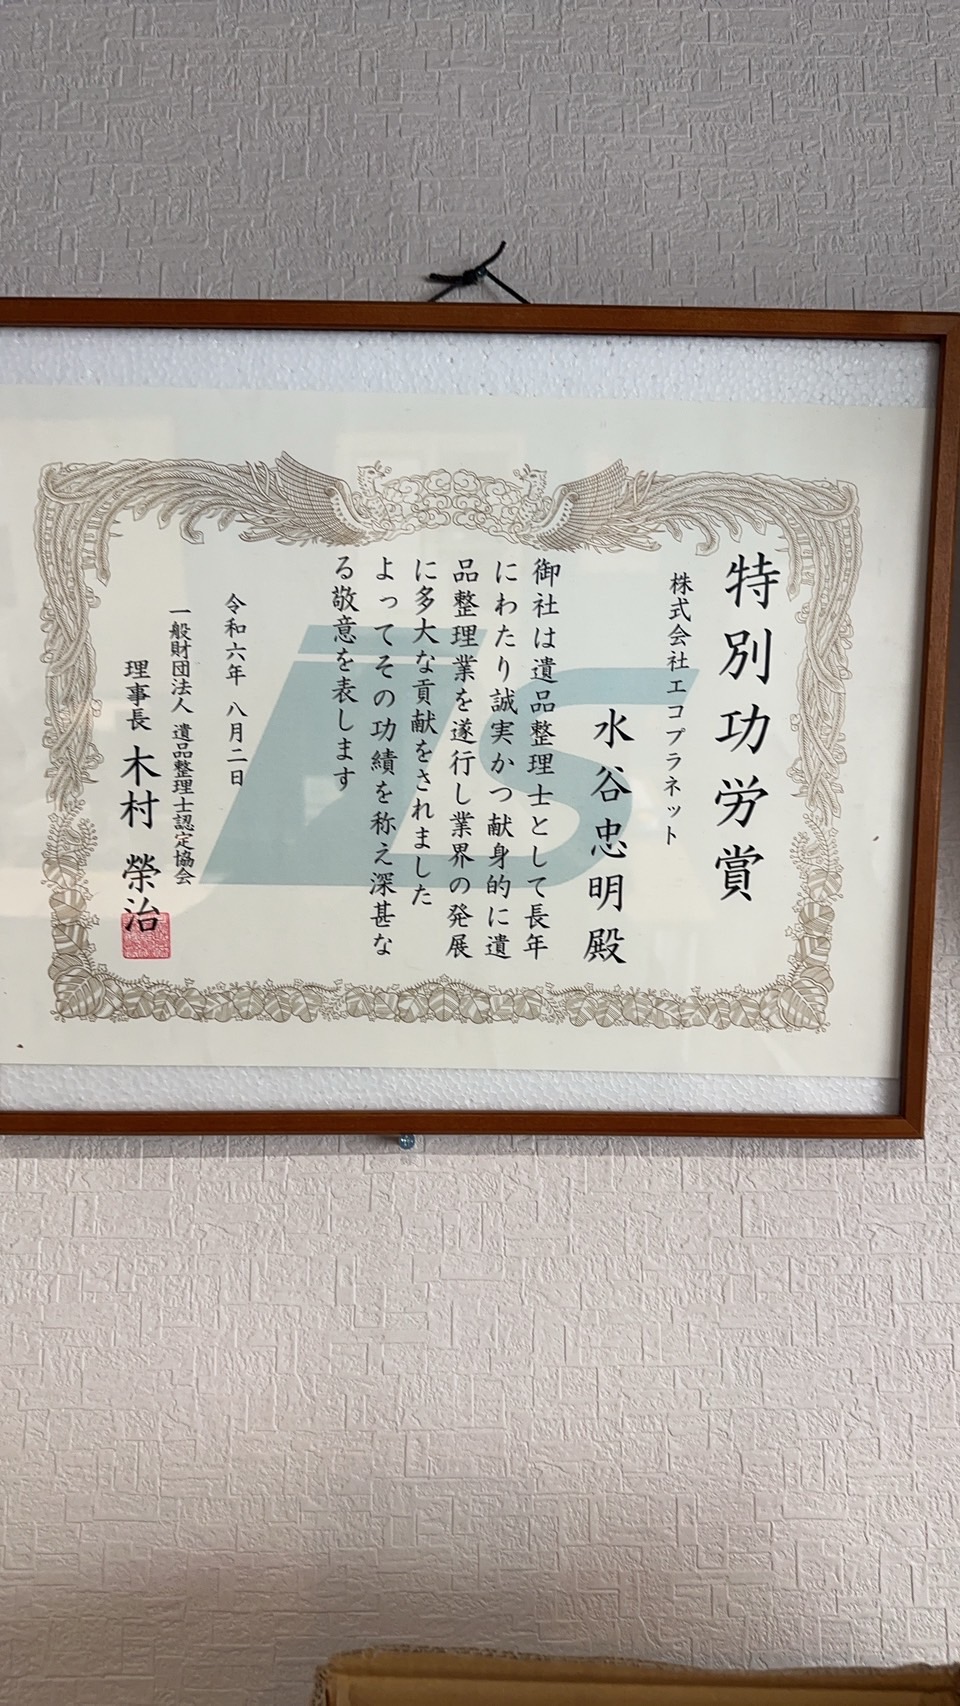 特別功労賞
株式会社エコプラネット
水谷忠明殿
御社は遺品整理士として長年
にわたり誠実かつ献身的に遺
品整理業を遂行し業界の発展
に多大な貢献をされました
よってその功績を称え深甚な
る敬意を表します
令和六年 八月二日
一般財団法人 遺品整理士認定協会
理事長 木村 榮治